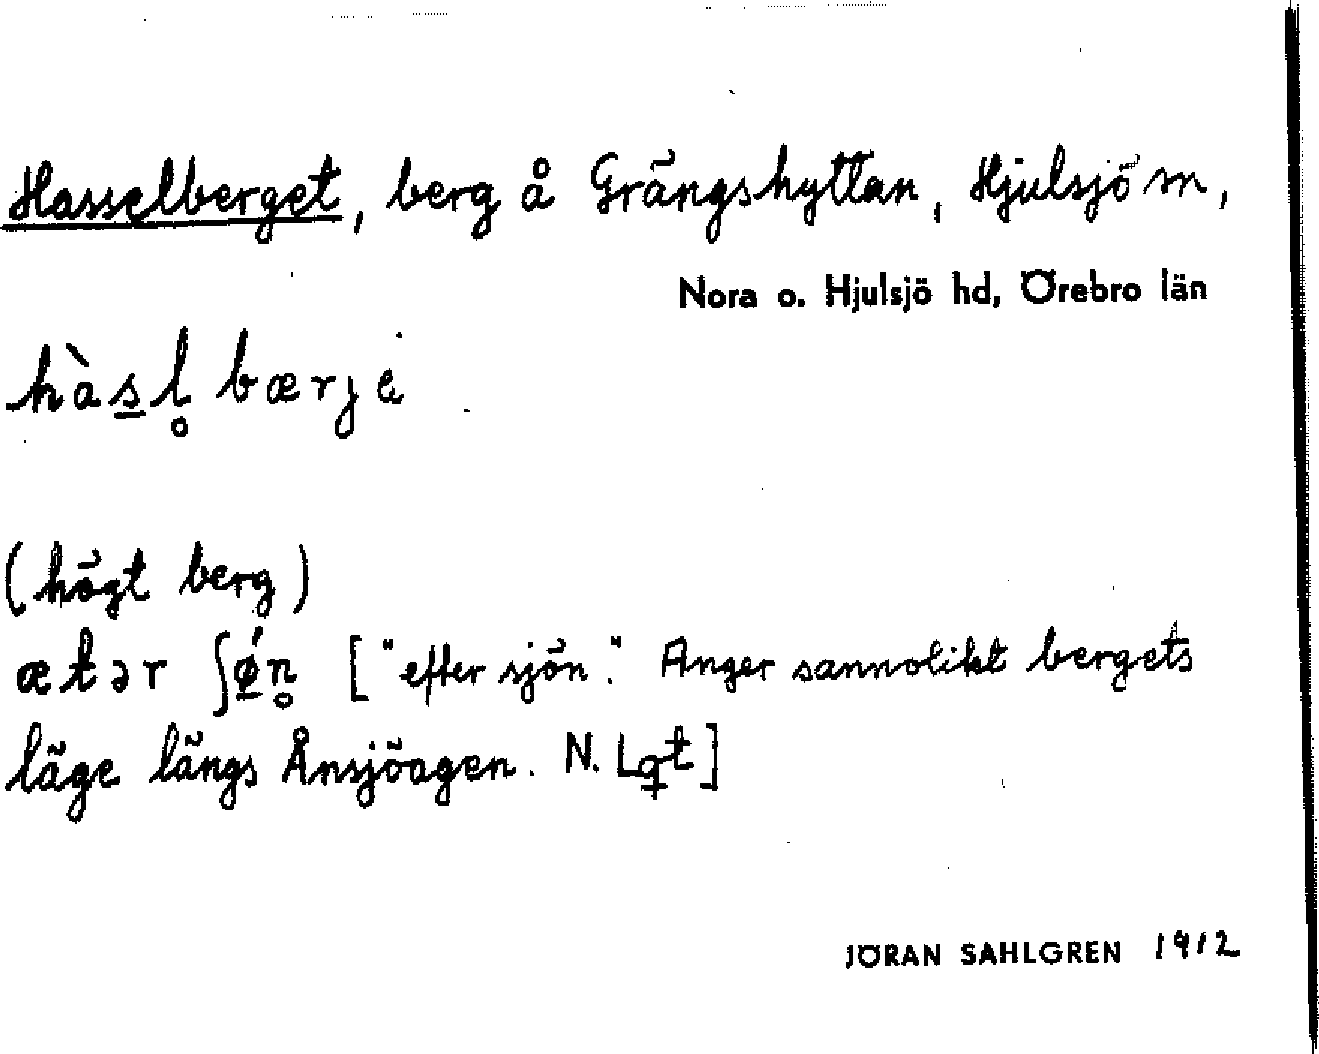 Hasselberget, berg å Grängshyttan, Hjulsjö sn,
Nora o. Hjulsjö hd, Örebro län
hàs̲l̥bærjė
(högt berg)
ætər ʃǿ̲n̥ ["efter sjön." Anger sannolikt bergets
läge längs Ånsjöagen. N. Lgt]
JÖRAN SAHLGREN 1912